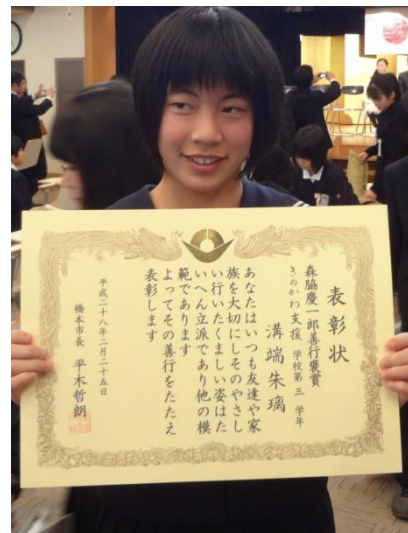 表彰状
森脇慶一郎善行褒賞
きのかわ支援 学校第三 学年
溝端朱璃
あなたはいつも友達や家
族を大切にしそのやさし
い行いたくましい姿はた
いへん立派であり他の模
範であります
よってその善行をたたえ
表彰します
平成二十八年二月二十五日
橋本市長 平木哲朗